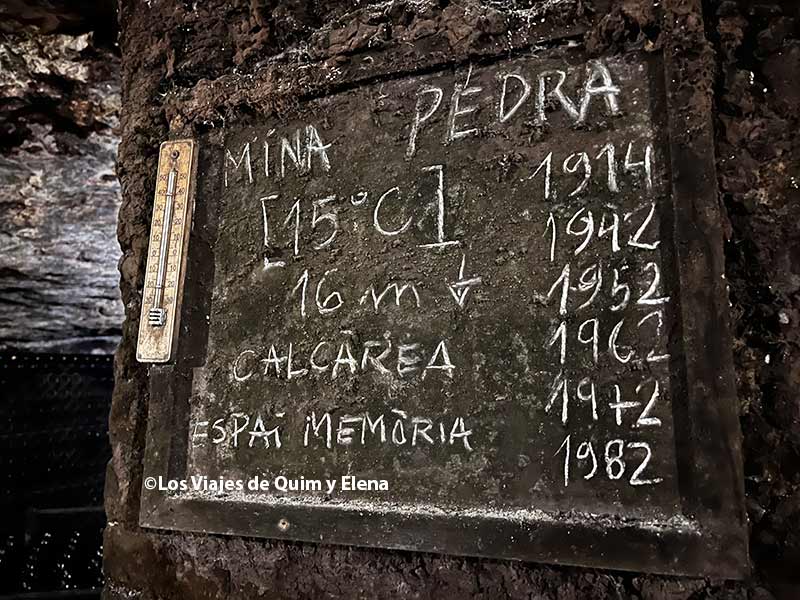 MINA PEDRA
[15°C]
16 m ↓
CALCÀREA
ESPAI MEMÒRIA
1914
1942
1952
1962
1972
1982
©Los Viajes de Quim y Elena